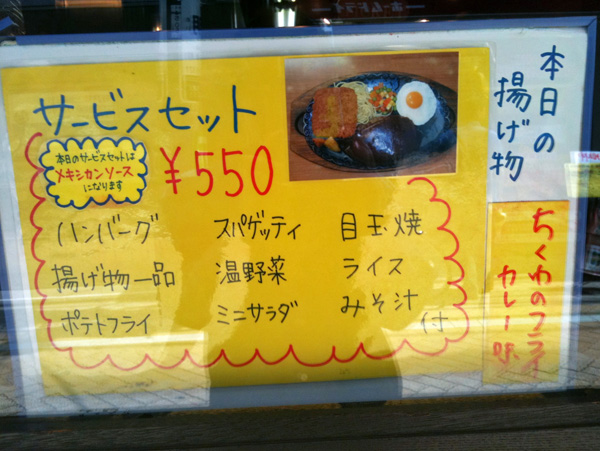 サービスセット
本日のサービスセットは
メキシカンソース
になります
¥550
ハンバーグ
スパゲッティ
目玉焼
揚げ物一品
温野菜
ライス
ポテトフライ
ミニサラダ
みそ汁
付
本日の
揚げ物
ちくわのフライ
カレー